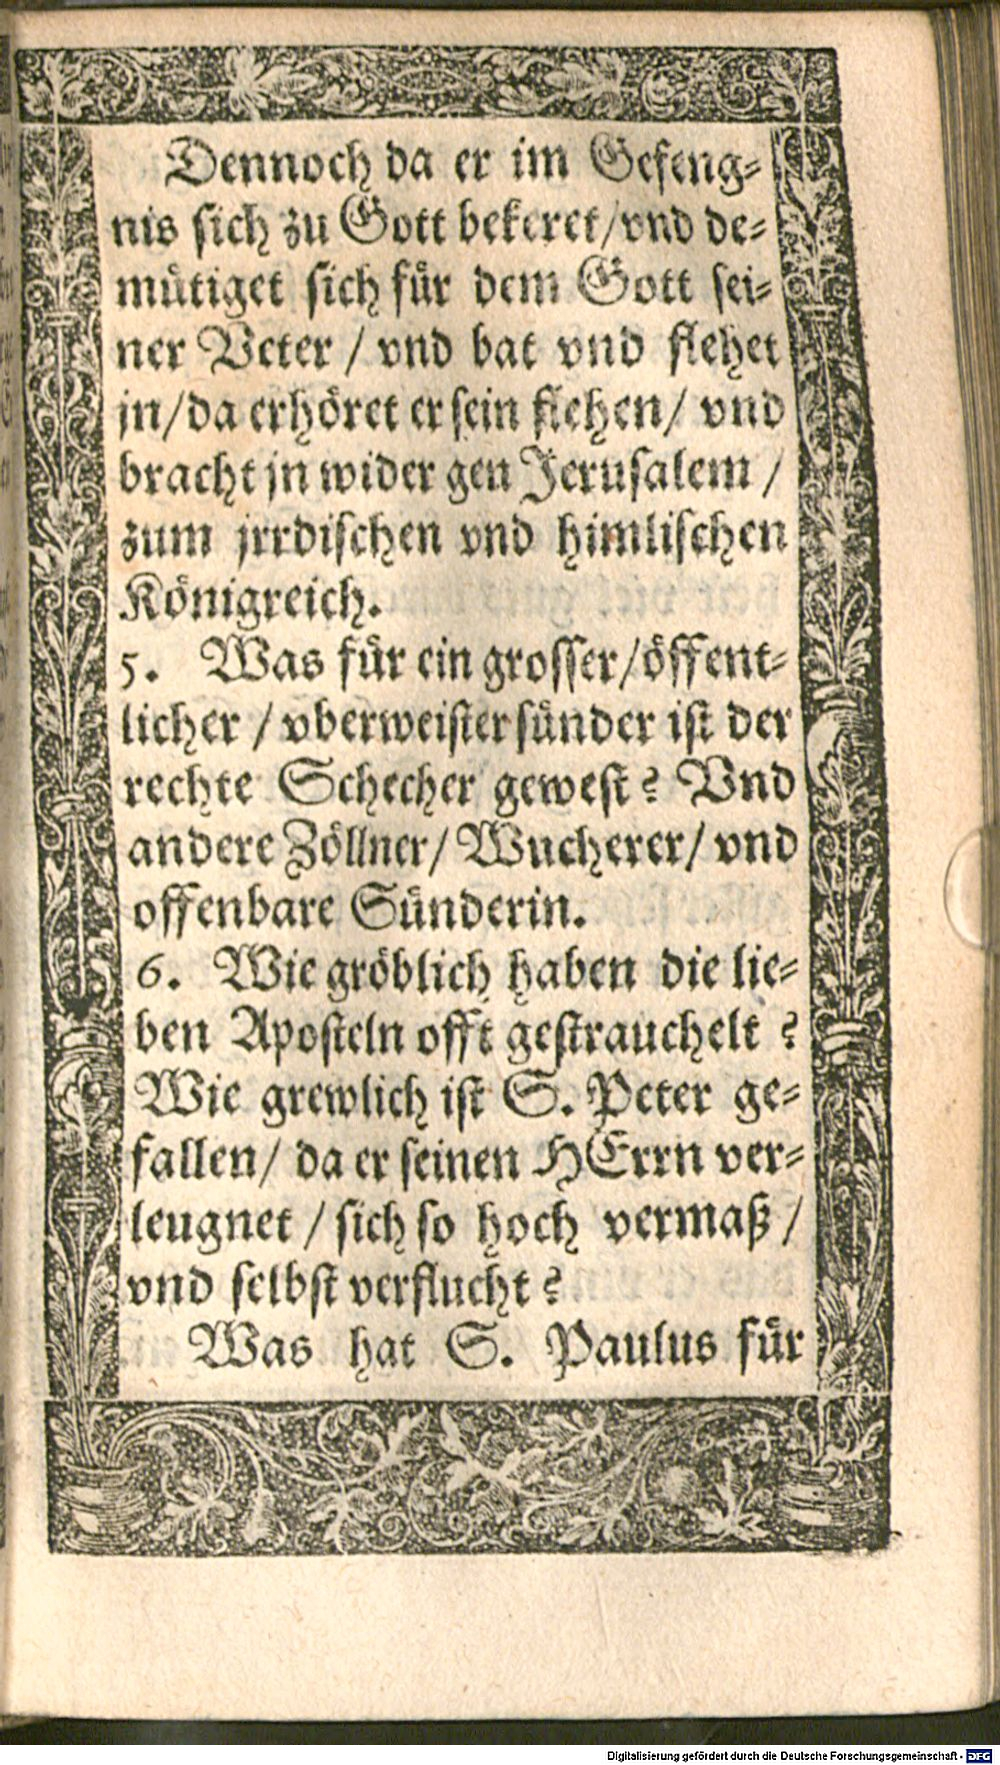 Dennoch da er im Gefeng-
nis sich zu Gott bekeret/vnd de-
mütiget sich für dem Gott sei-
ner Veter / vnd bat vnd flehet
jn/da erhöret er sein flehen/ vnd
bracht jn wider gen Jerusalem /
zum jrrdischen vnd himlischen
Königreich.
5. Was für ein grosser/öffent-
licher / vberweister sünder ist der
rechte Schecher gewest? Vnd
andere Zöllner/ Wucherer/ vnd
offenbare Sünderin.
6. Wie gröblich haben die lie-
ben Aposteln offt gestrauchelt ?
Wie grewlich ist S. Peter ge-
fallen/ da er seinen HErrn ver-
leugnet / sich so hoch vermaß /
vnd selbst verflucht?
Was hat S. Paulus für
Digitalisierung gefördert durch die Deutsche Forschungsgemeinschaft - DFG